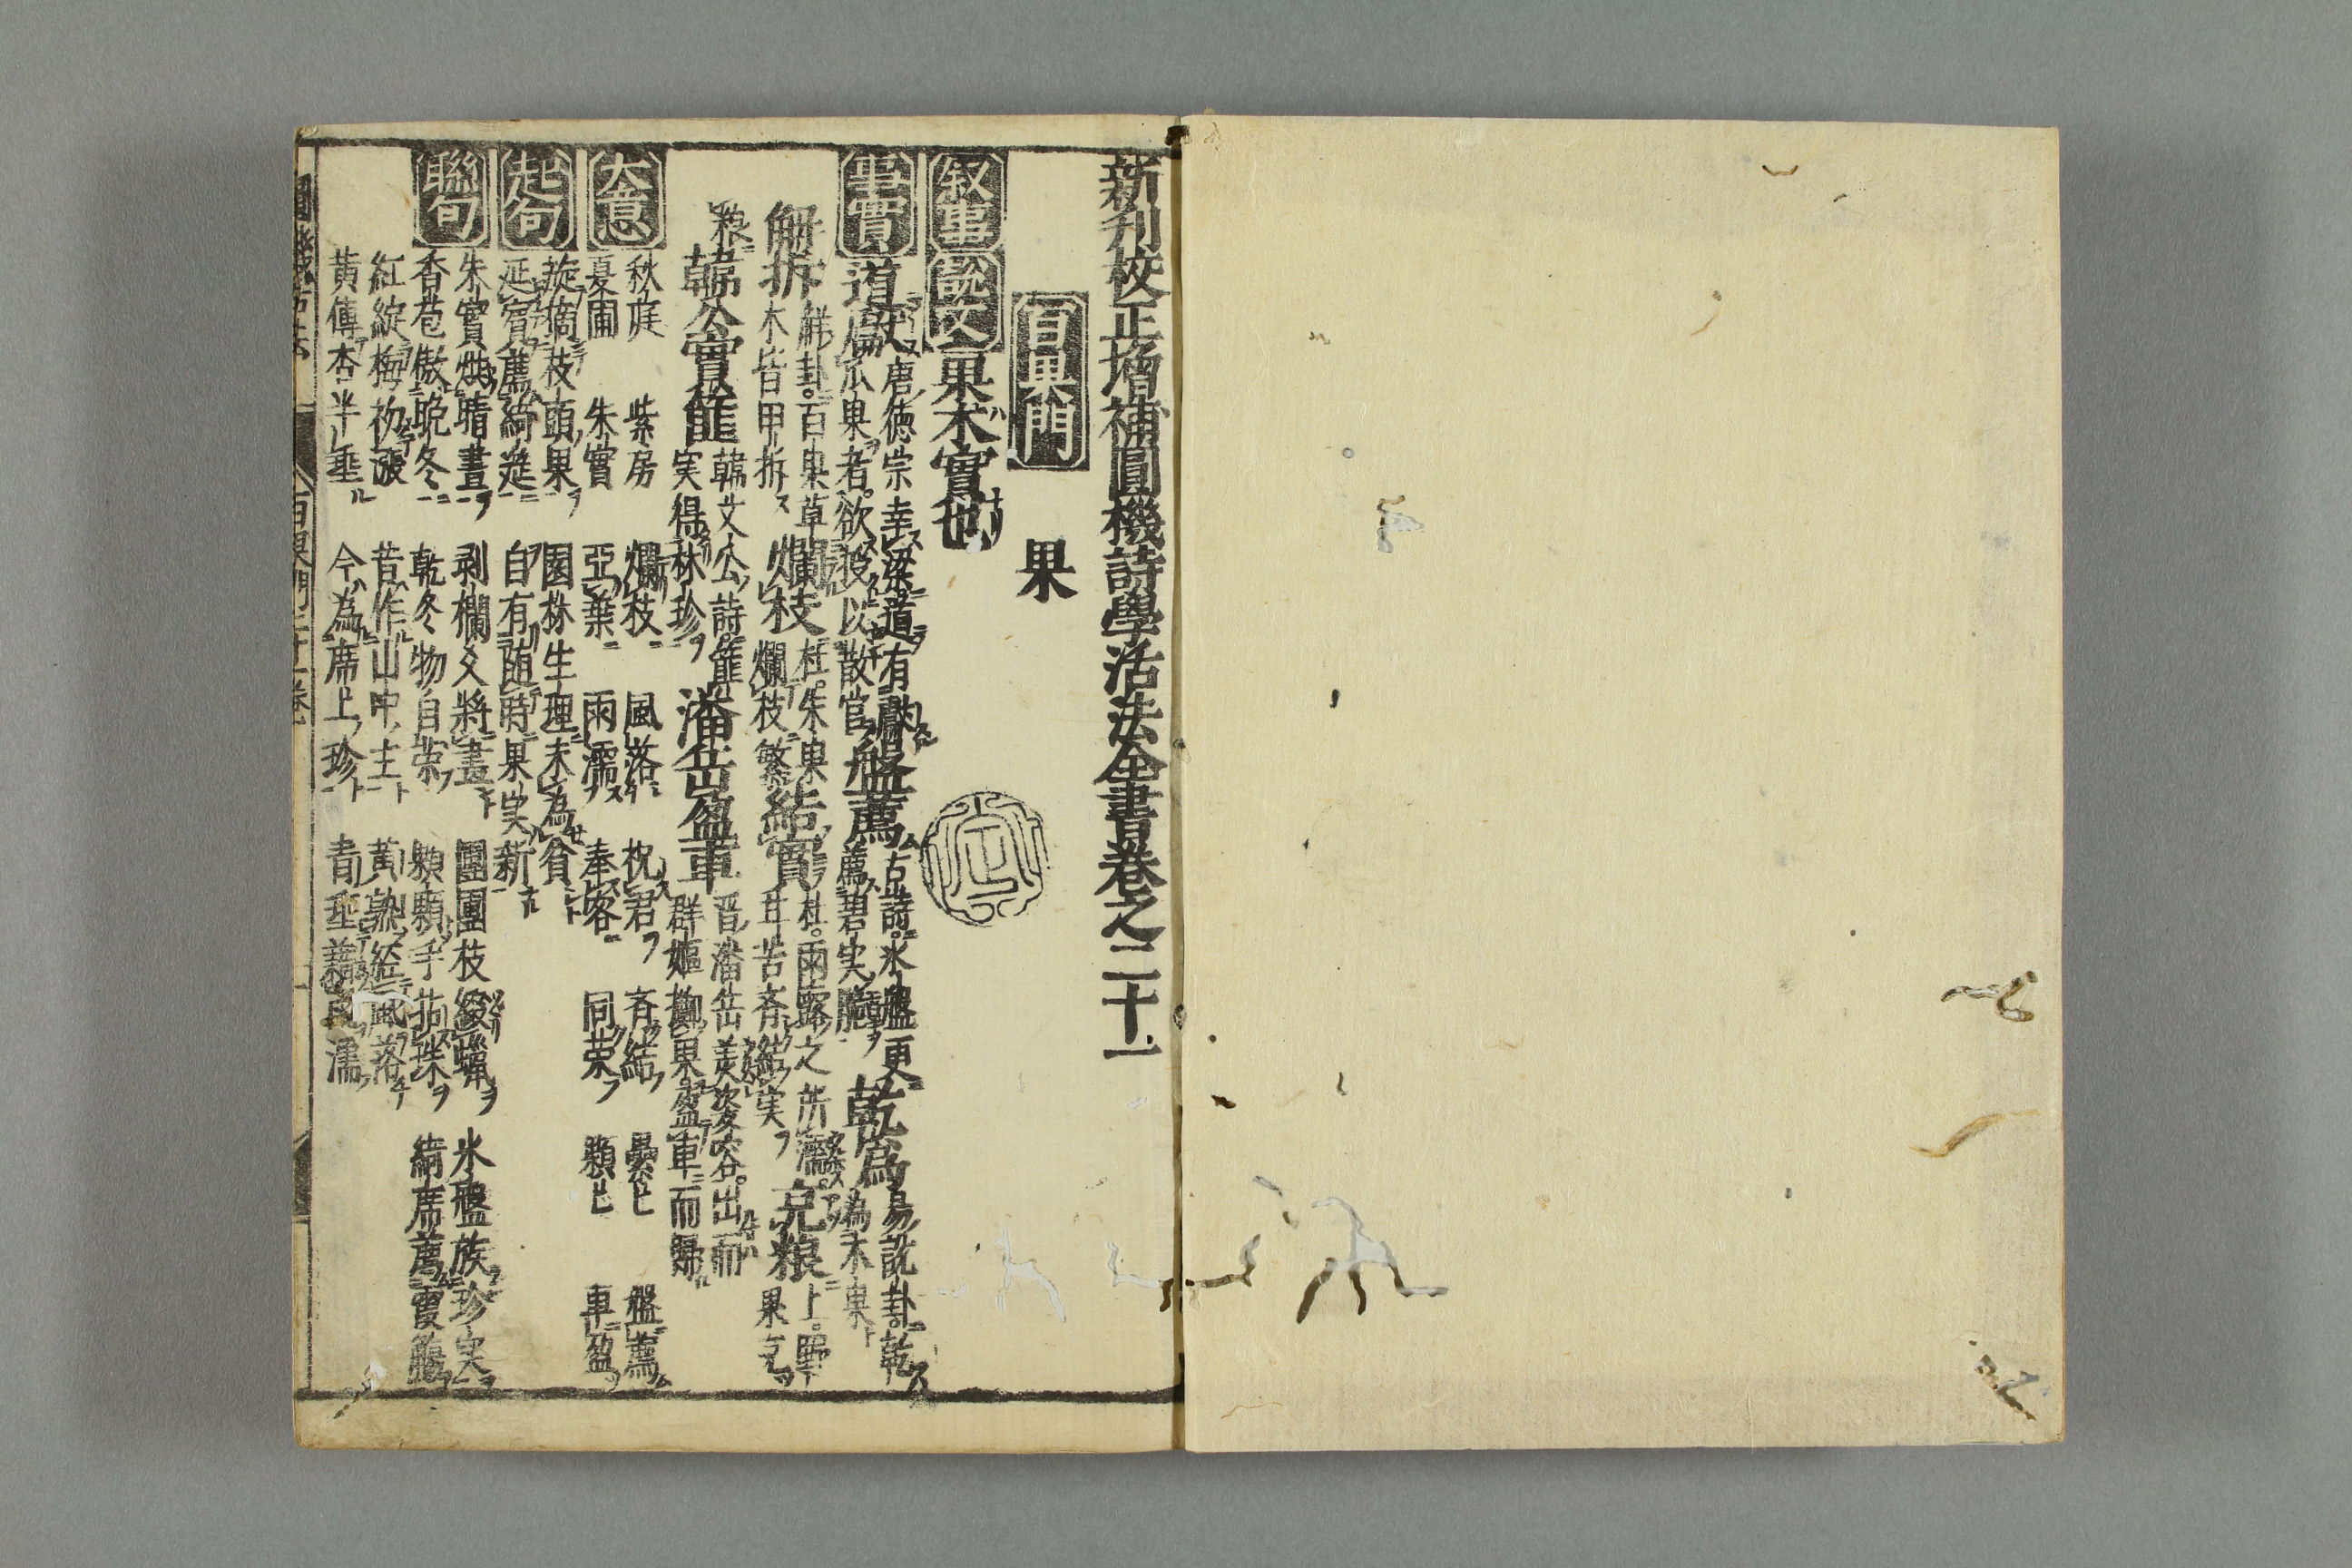 新刊校正增補圓機詩學活法全書卷之二十一
百果門 果
叙事 說文 果木實也
事實 道獻 唐德宗幸梁道有獻瓜果者欲授以散官 盤薦 古詩氷盤更薦碧実 乾為 易說卦乾為木果
解拆 解卦百果草木皆甲拆 爛枝 杜朱果爛枝繁 結實 杜雨露之所濡甘苦斉結実 充粮 上野果充粮
韓公實籠 韓文公詩籠実得林珍 潘岳盈車 晋潘岳美姿容出而群嫗擲果盈車而歸
大意 秋庭 紫房 爛枝 風落 祝君 斉結 盤薦
夏圃 朱實 亞葉 雨濡 奉客 同榮 車盈
起句 旋摘枝頭果 園林生理未為貧
延賓薦綺筵 自有随時果実新
聯句 朱實烘晴晝 剥欄又將盡 團團枝綴蠟 氷盤族珍実
香苞傲晩冬 乾冬物自荣 顆顆手拘珠 綺席薦霞觴
紅綻梅初漲 昔作山中主 黄熟經風落
黄傳杏半垂 今為席上珍 青垂
圓機詩法 百果門二十一卷 一